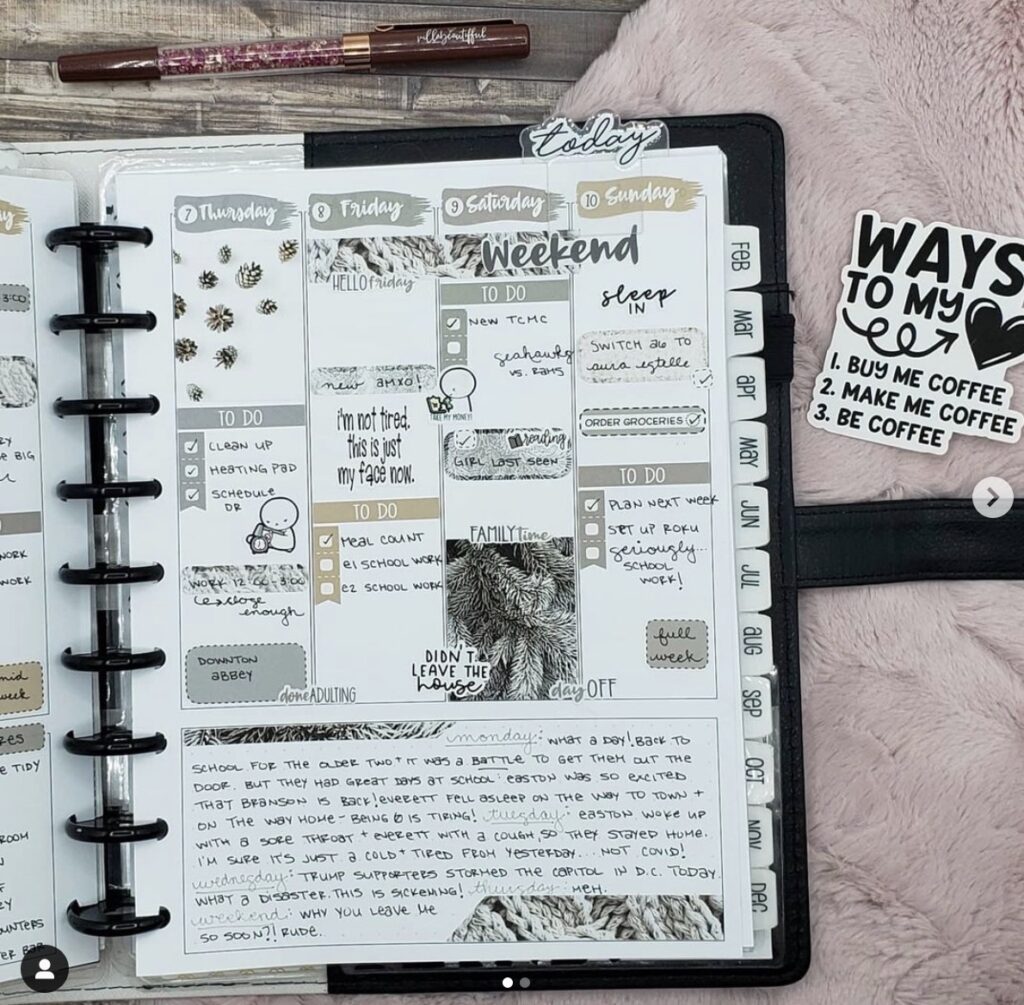 villabeautifful
today
7 Thursday
8 Friday
9 Saturday
10 Sunday
3:00
BIG
WORK
WORK
mid
week
TIDY
ROOM
COUNTERS
TO DO
CLEAN UP
HEATING PAD
SCHEDULE
DR
WORK 12:00-3:00
close
enough
DOWNTON
ABBEY
done ADULTING
HELLO friday
new AMXO!
i'm not tired.
this is just
my face now.
TO DO
MEAL COUNT
e1 SCHOOL WORK
e2 SCHOOL WORK
Weekend
TO DO
NEW TCMC
seahawks
VS. RAMS
TAKE MY MONEY!
reading
GIRL LAST SEEN
FAMILY time
DIDN'T
LEAVE THE
house
sleep
IN
SWITCH a6 TO
aura estelle
ORDER GROCERIES
TO DO
PLAN NEXT WEEK
SET UP ROKU
seriously...
SCHOOL
WORK!
full
week
day OFF
monday: WHAT A DAY! BACK TO
SCHOOL FOR THE OLDER TWO + IT WAS A BATTLE TO GET THEM OUT THE
DOOR. BUT THEY HAD GREAT DAYS AT SCHOOL: EASTON WAS SO EXCITED
THAT BRANSON IS BACK! EVERETT FELL ASLEEP ON THE WAY TO TOWN +
ON THE WAY HOME - BEING 6 IS TIRING! tuesday: EASTON WOKE UP
WITH A SORE THROAT + EVERETT WITH A COUGH, SO THEY STAYED HOME.
I'M SURE IT'S JUST A COLD + TIRED FROM YESTERDAY... NOT COVID!
wednesday: TRUMP SUPPORTERS STORMED THE CAPITOL IN D.C. TODAY.
WHAT A DISASTER. THIS IS SICKENING! thursday: MEH.
weekend: WHY YOU LEAVE ME
SO SOON?! RUDE.
FEB
MAR
APR
MAY
JUN
JUL
AUG
SEP
OCT
NOV
DEC
WAYS
TO MY
1. BUY ME COFFEE
2. MAKE ME COFFEE
3. BE COFFEE